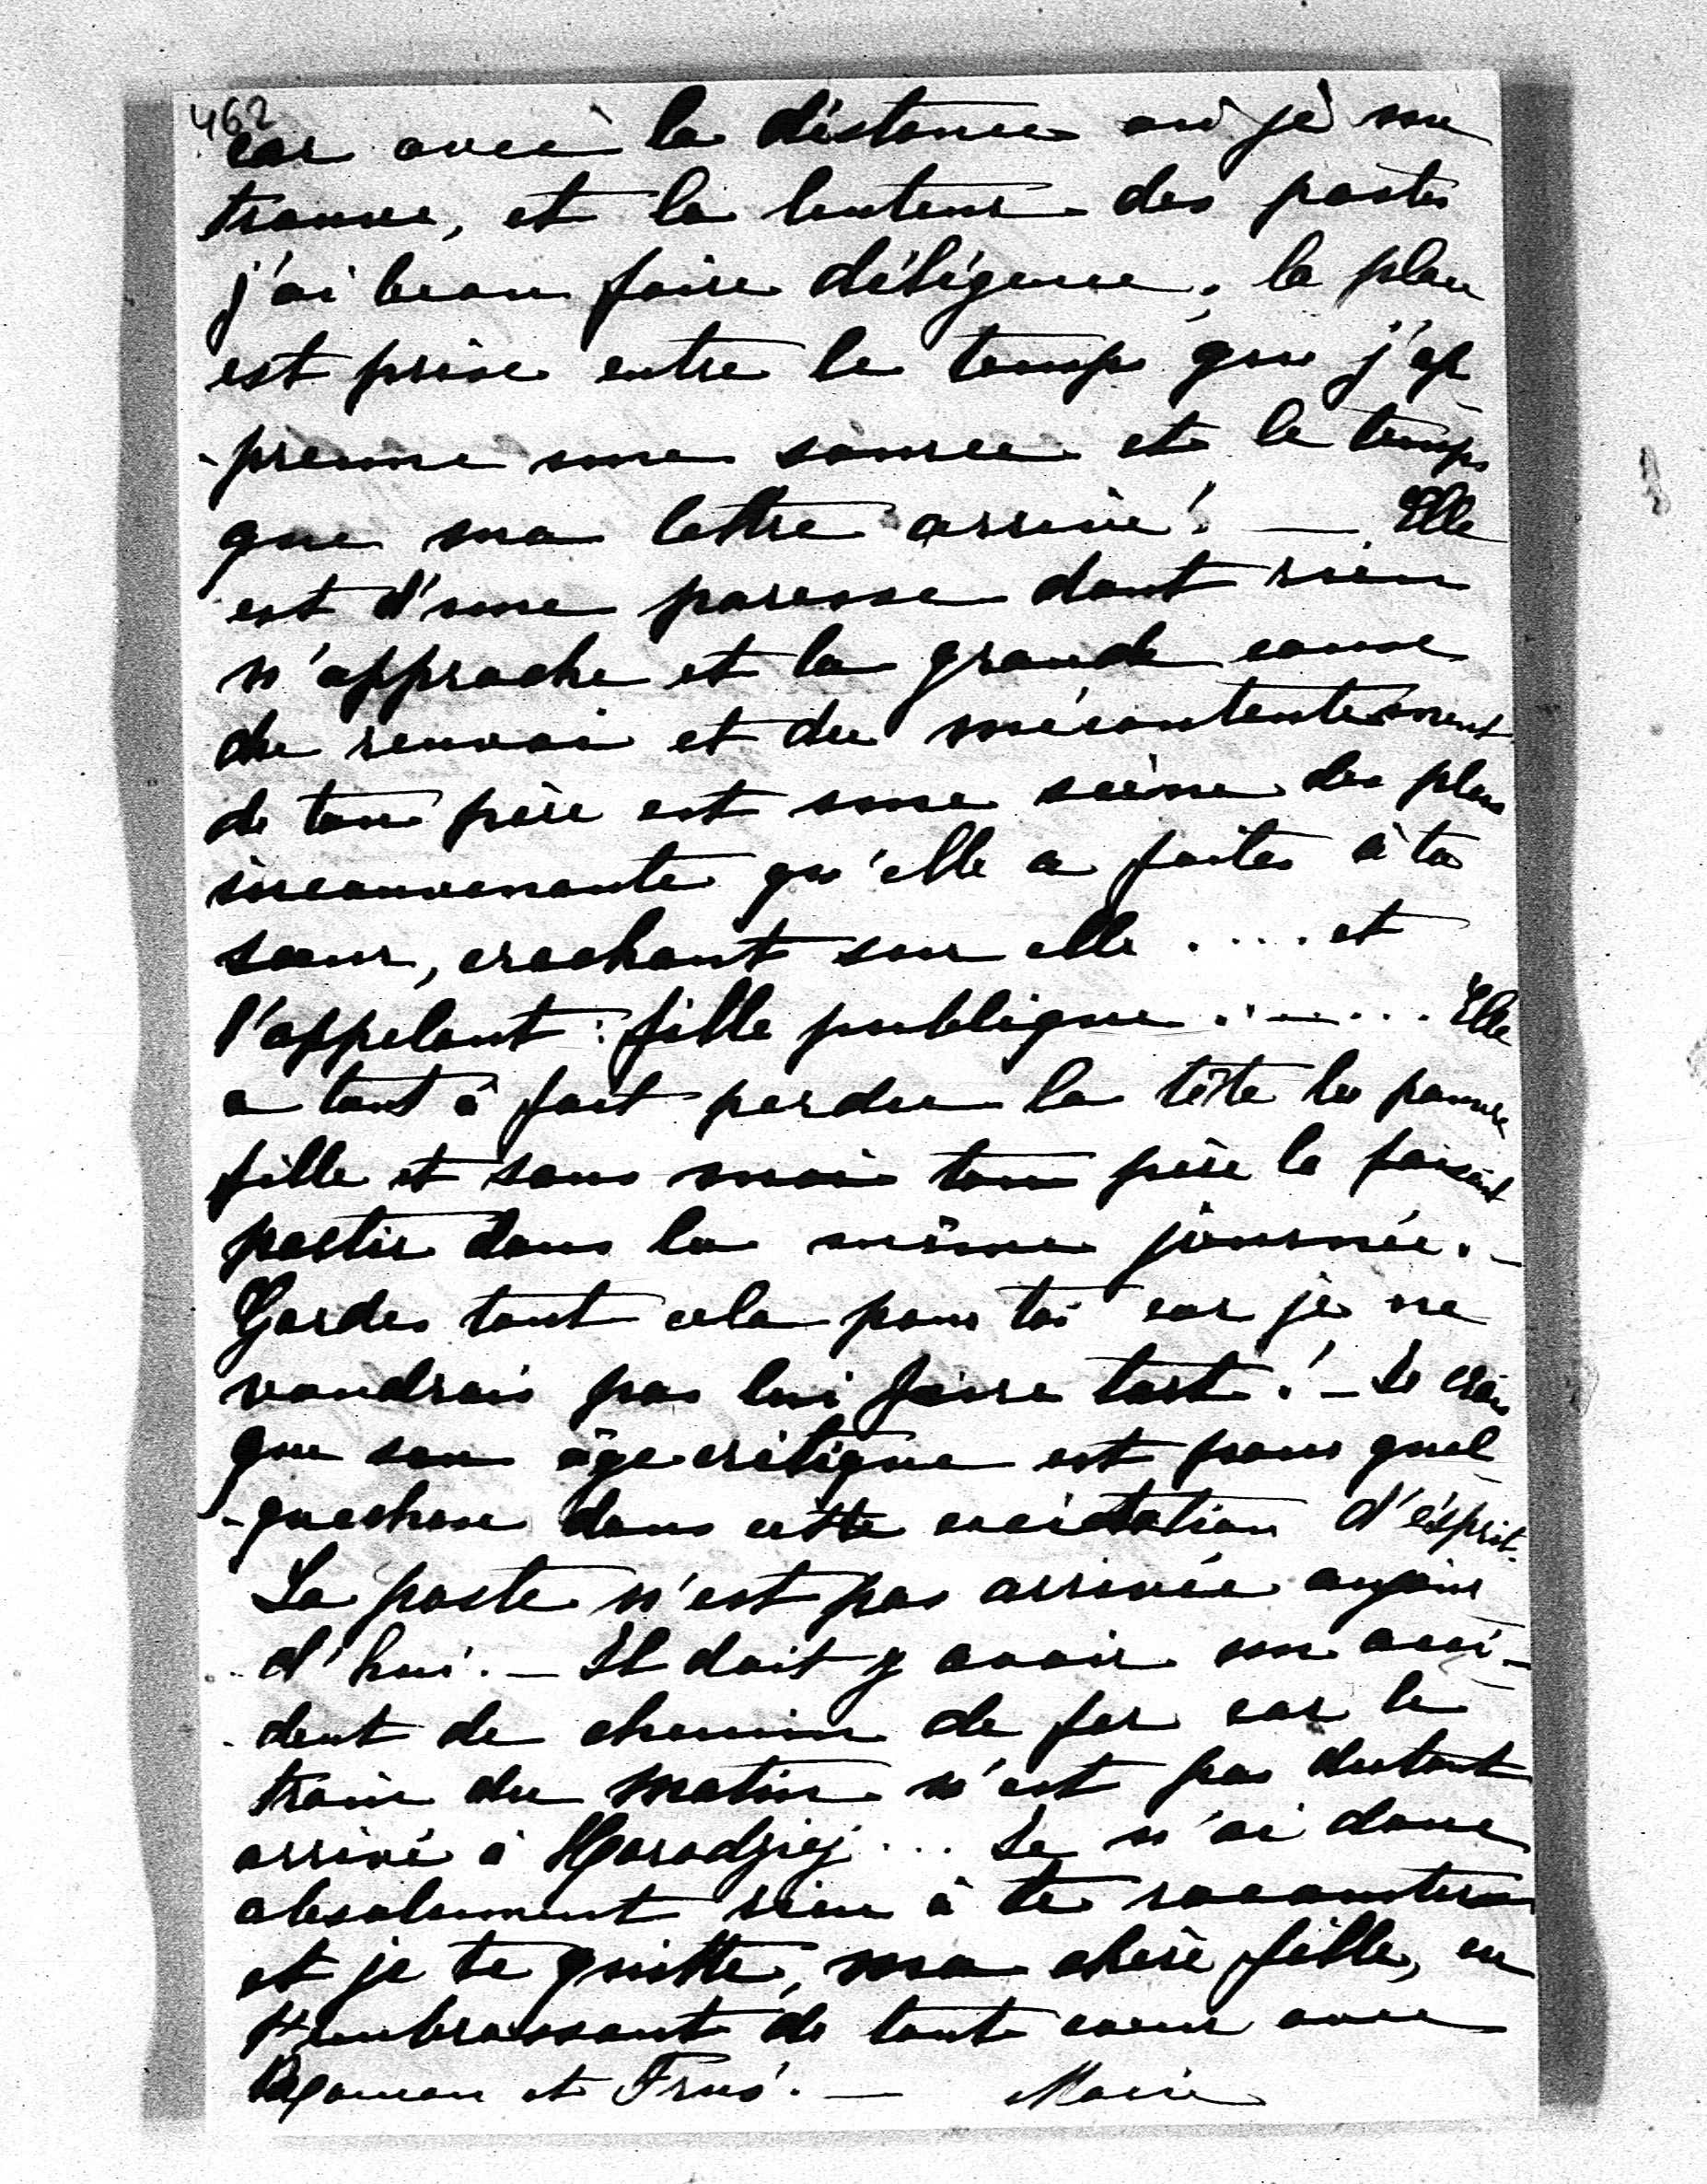 462
car avec la distance où je me
trouve, et la lenteur des postes
j'ai beau faire diligence, la place
est prise entre le temps que j'ap
-prenne une source et le temps
que ma lettre arrive! — Elle
est d'une paresse dont rien
n'approche et la grande cause
du renvoi et du mécontentement
de ton père est une scène des plus
inconvenante qu'elle a faites à ta
sœur, crachant sur elle .... et
l'appelant : fille publique . — ... Elle
a tout à fait perdu la tête la pauvre
fille et sans moi ton père la faisait
partir dans la même journée. —
Gardes tout cela pour toi car je ne
voudrais pas lui faire tort! — Je crois
que son âge critique est pour quel
-quechose dans cette excitation d'esprit.
La poste n'est pas arrivée aujour
d'hui. — Il doit y avoir un acci-
dent de chemin de fer car le
train du matin n'est pas dutout
arrivé à Horodziej ... Je n'ai donc
absolument rien à te raconter
et je te quitte, ma chère fille, en
t'embrassant de tout cœur avec
et — Marie